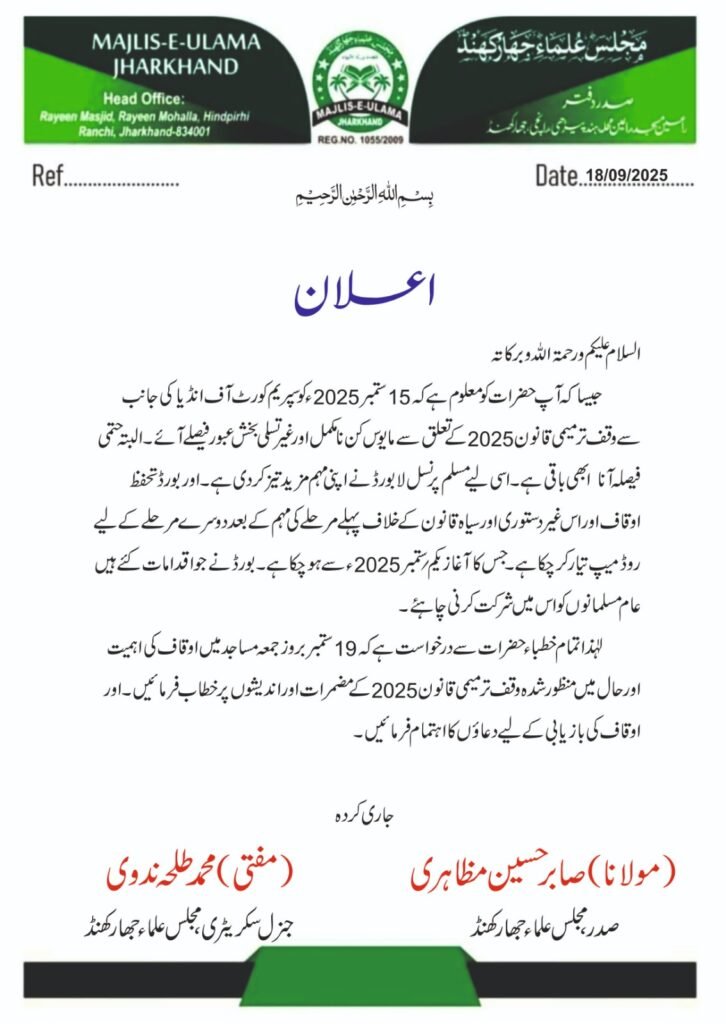 MAJLIS-E-ULAMA
JHARKHAND
Head Office:
Rayeen Masjid, Rayeen Mohalla, Hindpirhi
Ranchi, Jharkhand-834001
MAJLIS-E-ULAMA
JHARKHAND
REG.NO. 1055/2009
مجلس علماء جھارکھنڈ
صدر دفتر
رائین مسجد، رائین محلہ، ہند پیڑھی، رانچی، جھارکھنڈ
Ref..........................
Date..18/09/2025.....
بسم اللہ الرحمٰن الرحیم
اعلان
السلام علیکم ورحمۃ اللہ وبرکاتہ
جیسا کہ آپ حضرات کو معلوم ہے کہ 15 ستمبر 2025ء کو سپریم کورٹ آف انڈیا کی جانب
سے وقف ترمیمی قانون 2025 کے تعلق سے مایوس کن نامکمل اور غیر تسلی بخش عبور فیصلے آئے۔ البتہ حتمی
فیصلہ آنا ابھی باقی ہے۔ اسی لیے مسلم پرنسل لا بورڈ نے اپنی مہم مزید تیز کردی ہے۔ اور بورڈ تحفظ
اوقاف اور اس غیر دستوری اور سیاہ قانون کے خلاف پہلے مرحلے کی مہم کے بعد دوسرے مرحلے کے لیے
روڈ میپ تیار کر چکا ہے۔ جس کا آغاز یکم ستمبر 2025ء سے ہو چکا ہے۔ بورڈ نے جو اقدامات کئے ہیں
عام مسلمانوں کو اس میں شرکت کرنی چاہئے۔
لہٰذا تمام خطباء حضرات سے درخواست ہے کہ 19 ستمبر بروز جمعہ مساجد میں اوقاف کی اہمیت
اور حال میں منظور شدہ وقف ترمیمی قانون 2025 کے مضمرات اور اندیشوں پر خطاب فرمائیں۔ اور
اوقاف کی بازیابی کے لیے دعاؤں کا اہتمام فرمائیں۔
جاری کردہ
(مولانا) صابر حسین مظاہری
صدر، مجلس علماء جھارکھنڈ
(مفتی) محمد طلحہ ندوی
جنرل سکریٹری، مجلس علماء جھارکھنڈ